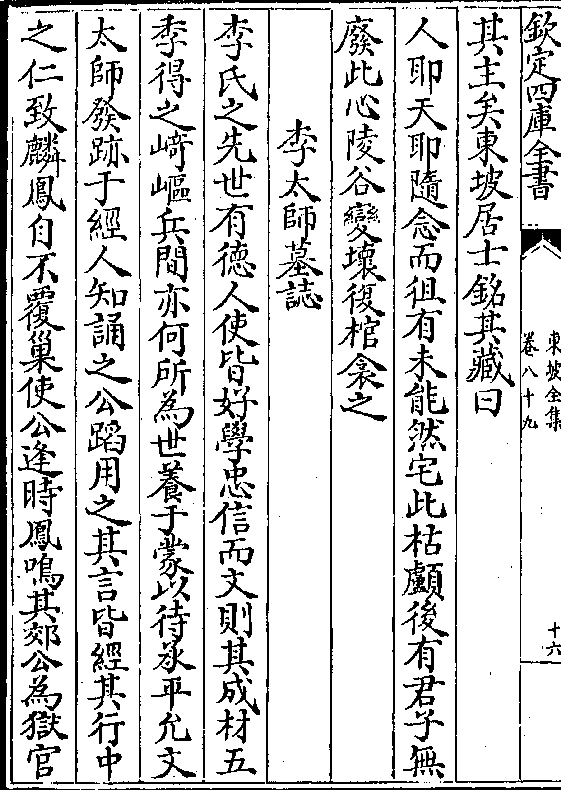 欽定四庫全書
東坡全集
卷八十九
十六
其主矣東坡居士銘其藏曰
人耶天耶隨念而徂有未能然宅此枯顱後有君子無
廢此心陵谷變壞復棺衾之
李太師墓誌
李氏之先世有德人使皆好學忠信而文則其成材五
季得之﨑嶇兵間亦何所為世養于蒙以待承平允文
太師發跡于經人知誦之公蹈用之其言皆經其行中
之仁致麟鳳自不覆巢使公逢時鳳鳴其郊公為獄官